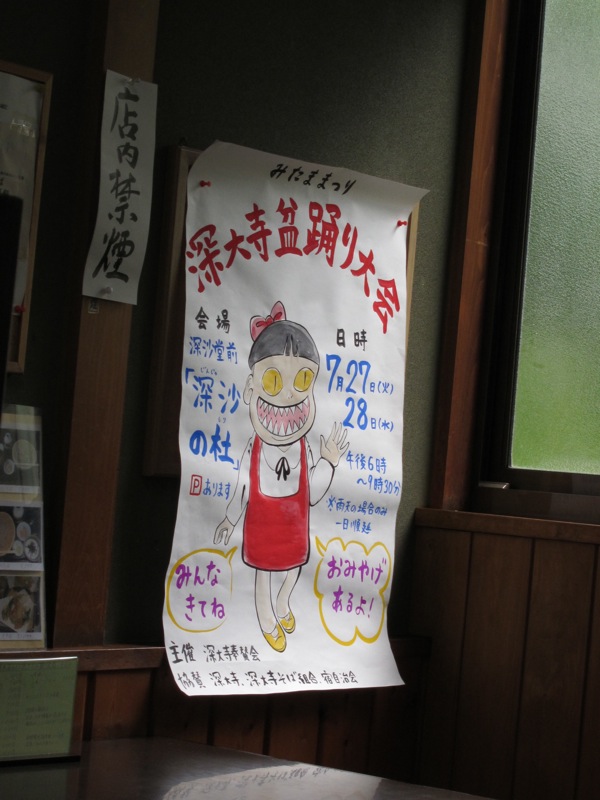 店内禁煙
みたままつり
深大寺盆踊り大会
会場
深沙堂前
「深沙
の杜」
Pあります
日時
7月27日(火)
28日(水)
午後6時
〜9時30分
※雨天の場合のみ
一日順延
みんな
きてね
おみやげ
あるよ!
主催 深大寺奉賛会
協賛 深大寺、深大寺そば組合、宿自治会